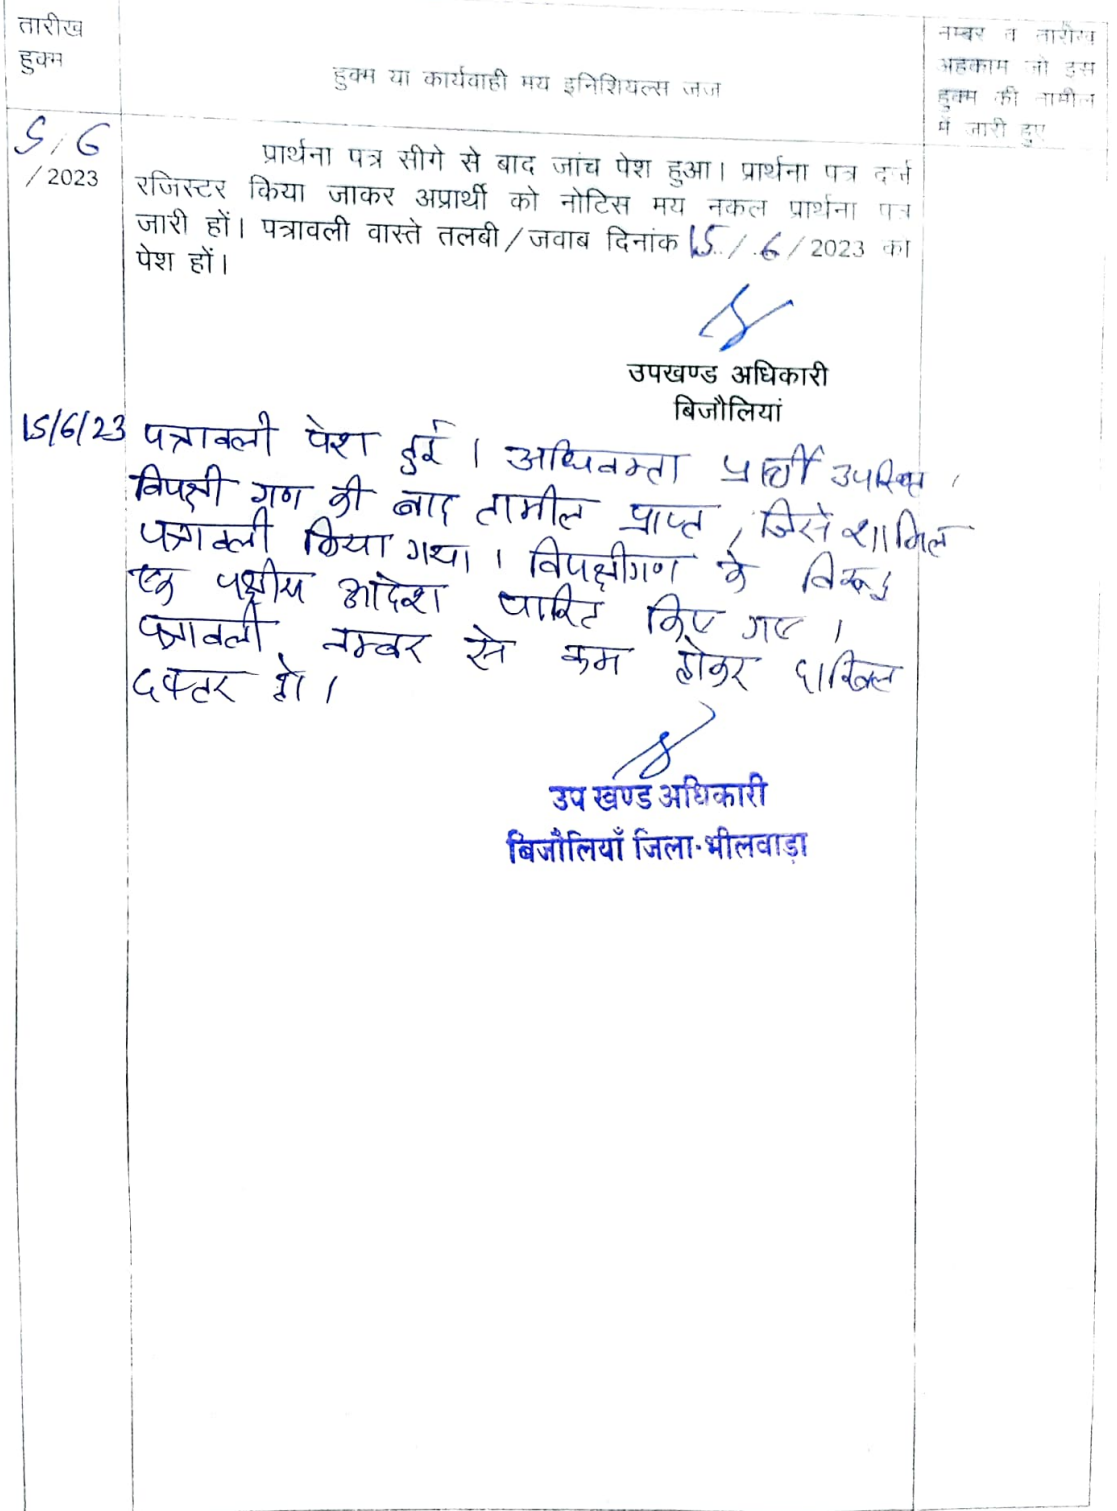 तारीख
हुक्म
हुक्म या कार्यवाही मय इनिशियल्स जज
नम्बर व तारीख
अहकाम जो इस
हुक्म की तामील
में जारी हुए
5/6
/2023
प्रार्थना पत्र सीगे से बाद जांच पेश हुआ। प्रार्थना पत्र दर्ज
रजिस्टर किया जाकर अप्रार्थी को नोटिस मय नकल प्रार्थना पत्र
जारी हों। पत्रावली वास्ते तलबी/जवाब दिनांक 15/6/2023 को
पेश हों।
उपखण्ड अधिकारी
बिजौलियां
15/6/23 पत्रावली पेश हुई। अधिवक्ता प्रार्थी उपस्थित।
विपक्षी गण की बाद तामील प्राप्त, जिसे शामिल
पत्रावली किया गया। विपक्षीगण के विरूद्ध
एक पक्षीय आदेश पारित किए गए।
पत्रावली नम्बर से कम होकर दाखिल
दफ्तर हो।
उप खण्ड अधिकारी
बिजौलियाँ जिला-भीलवाड़ा